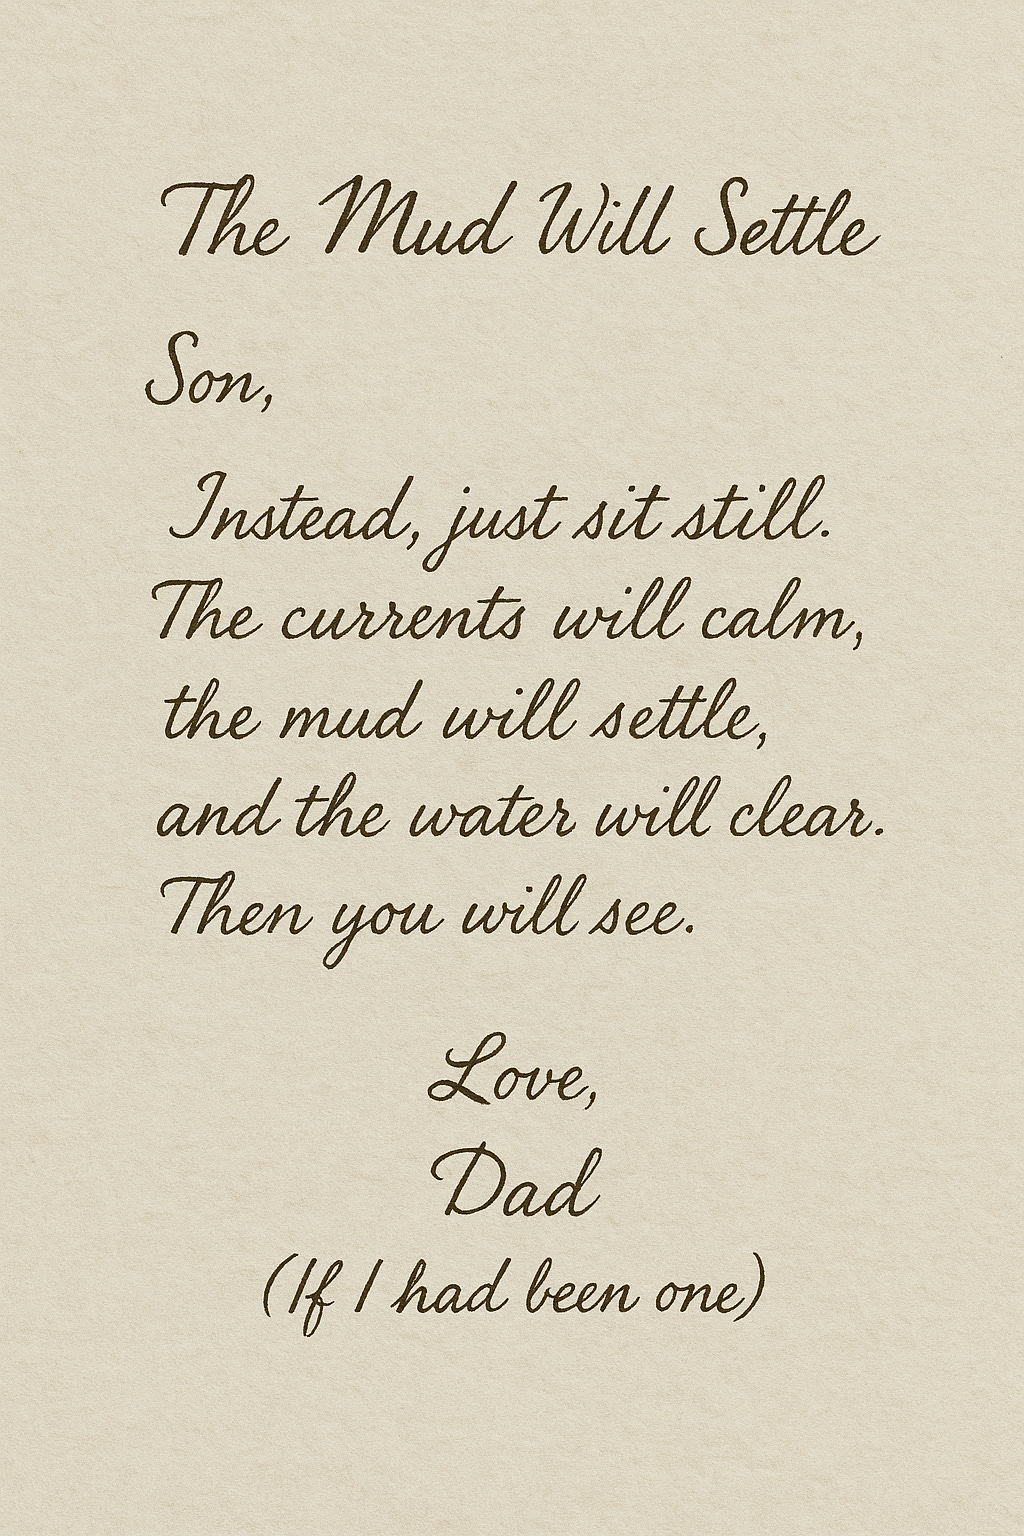 The Mud Will Settle
Son,
Instead, just sit still.
The currents will calm,
the mud will settle,
and the water will clear.
Then you will see.
Love,
Dad
(If I had been one)